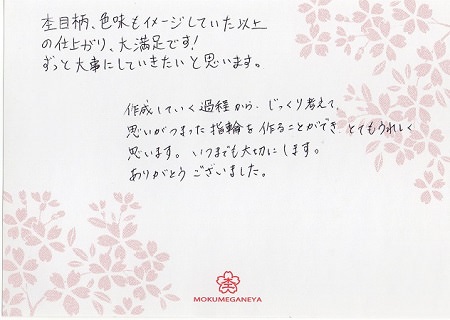 杢目柄、色味もイメージしていた以上
の仕上がり、大満足です!
ずっと大事にしていきたいと思います。
作成していく過程から、じっくり考えて、
思いがつまった指輪を作ることができ とてもうれしく
思います。いつまでも大切にします。
ありがとうございました。
MOKUMEGANEYA